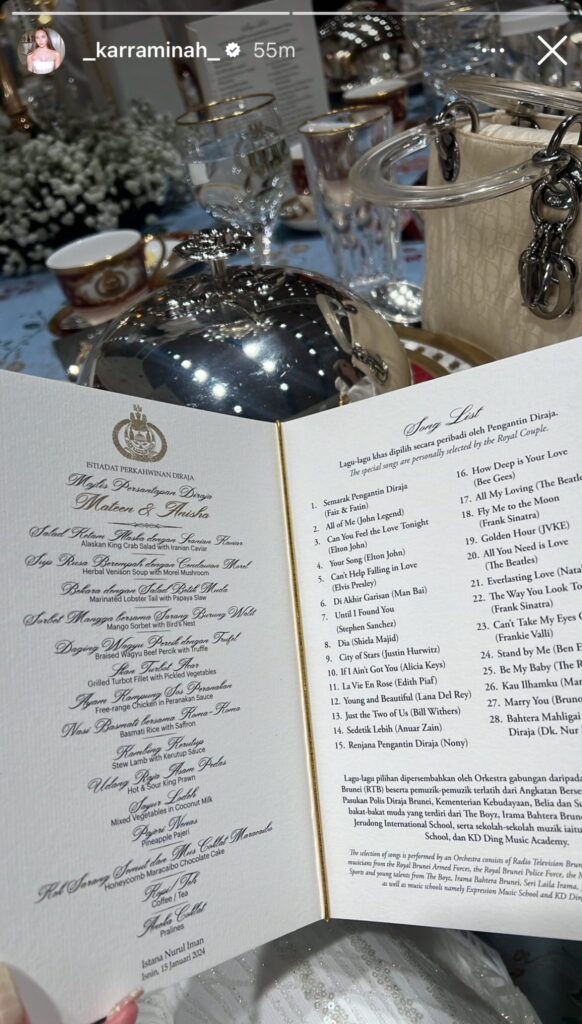 _karraminah_ 55m
ISTIADAT PERKAHWINAN DIRAJA
Majlis Persantapan Diraja
Mateen & Anisha
Salad Ketam Alaska dengan Iranian Kaviar
Alaskan King Crab Salad with Iranian Caviar
Sup Rusa Berempah dengan Cendawan Morel
Herbal Venison Soup with Morel Mushroom
Bekara dengan Salad Betik Muda
Marinated Lobster Tail with Papaya Slaw
Sorbet Mangga bersama Sarang Burung Walit
Mango Sorbet with Bird's Nest
Daging Wagyu Percik dengan Trufel
Braised Wagyu Beef Percik with Truffle
Ikan Turbot Acar
Grilled Turbot Fillet with Pickled Vegetables
Ayam Kampung Sos Peranakan
Free-range Chicken in Peranakan Sauce
Nasi Basmati bersama Koma-Koma
Basmati Rice with Saffron
Kambing Kerutup
Stew Lamb with Kerutup Sauce
Udang Raja Asam Pedas
Hot & Sour King Prawn
Sayur Lodeh
Mixed Vegetables in Coconut Milk
Pajeri Nenas
Pineapple Pajeri
Kek Sarang Semut dan Mus Coklat Maracaibo
Honeycomb Maracaibo Chocolate Cake
Kopi / Teh
Coffee / Tea
Aneka Coklat
Pralines
Istana Nurul Iman
Isnin, 15 Januari 2024
Song List
Lagu-lagu khas dipilih secara peribadi oleh Pengantin Diraja.
The special songs are personally selected by the Royal Couple.
1. Semarak Pengantin Diraja
(Faiz & Fatin)
2. All of Me (John Legend)
3. Can You Feel the Love Tonight
(Elton John)
4. Your Song (Elton John)
5. Can't Help Falling in Love
(Elvis Presley)
6. Di Akhir Garisan (Man Bai)
7. Until I Found You
(Stephen Sanchez)
8. Dia (Shiela Majid)
9. City of Stars (Justin Hurwitz)
10. If I Ain't Got You (Alicia Keys)
11. La Vie En Rose (Edith Piaf)
12. Young and Beautiful (Lana Del Rey)
13. Just the Two of Us (Bill Withers)
14. Sedetik Lebih (Anuar Zain)
15. Renjana Pengantin Diraja (Nony)
16. How Deep is Your Love
(Bee Gees)
17. All My Loving (The Beatle
18. Fly Me to the Moon
(Frank Sinatra)
19. Golden Hour (JVKE)
20. All You Need is Love
(The Beatles)
21. Everlasting Love (Nata
22. The Way You Look To
(Frank Sinatra)
23. Can't Take My Eyes
(Frankie Valli)
24. Stand by Me (Ben E
25. Be My Baby (The R
26. Kau Ilhamku (Man
27. Marry You (Bruno
28. Bahtera Mahligai
Diraja (Dk. Nur
Lagu-lagu pilihan dipersembahkan oleh Orkestra gabungan daripada
Brunei (RTB) beserta pemuzik-pemuzik terlatih dari Angkatan Berse
Pasukan Polis Diraja Brunei, Kementerian Kebudayaan, Belia dan Su
bakat-bakat muda yang terdiri dari The Boyz, Irama Bahtera Brune
Jerudong International School, serta sekolah-sekolah muzik iaitu
School, dan KD Ding Music Academy.
The selection of songs is performed by an Orchestra consists of Radio Television Brun
musicians from the Royal Brunei Armed Forces, the Royal Brunei Police Force, the M
Sports and young talents from The Boyz, Irama Bahtera Brunei, Seri Laila Irama,
as well as music schools namely Expression Music School and KD Ding